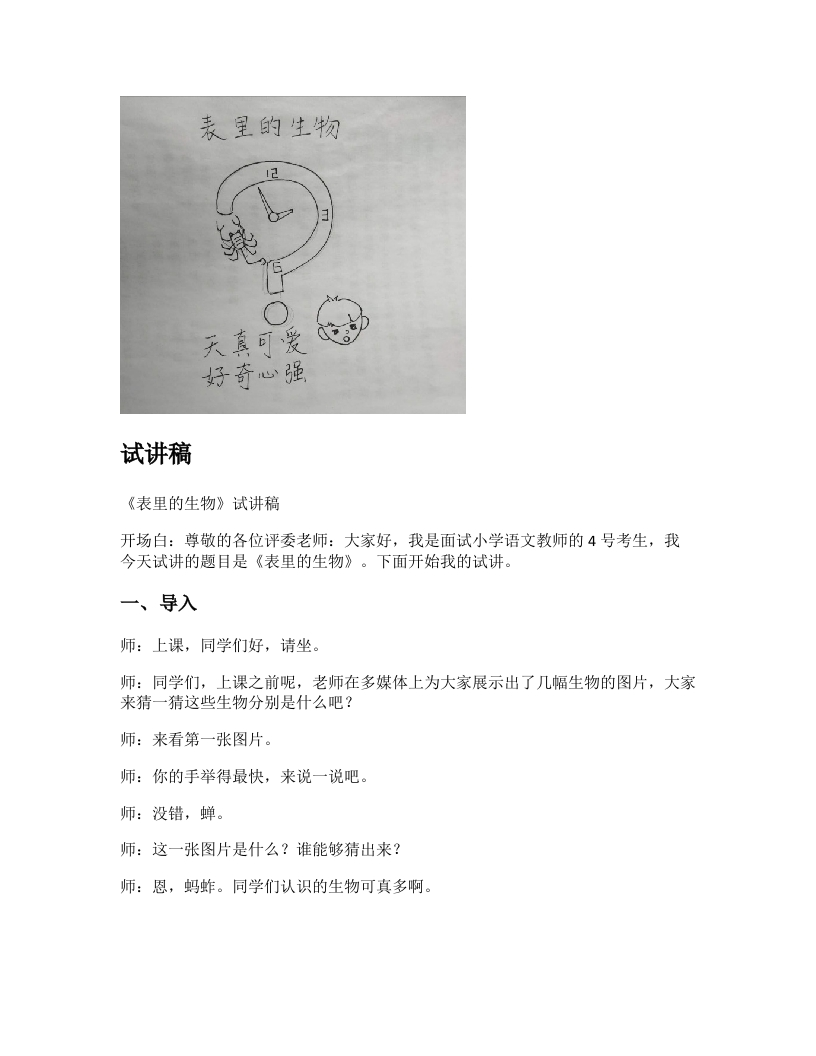 表里的生物
12
3
6
天真可爱
好奇心强
试讲稿
《表里的生物》试讲稿
开场白：尊敬的各位评委老师：大家好，我是面试小学语文教师的 4 号考生，我
今天试讲的题目是《表里的生物》。下面开始我的试讲。
一、导入
师：上课，同学们好，请坐。
师：同学们，上课之前呢，老师在多媒体上为大家展示出了几幅生物的图片，大家
来猜一猜这些生物分别是什么吧？
师：来看第一张图片。
师：你的手举得最快，来说一说吧。
师：没错，蝉。
师：这一张图片是什么？谁能够猜出来？
师：恩，蚂蚱。同学们认识的生物可真多啊。